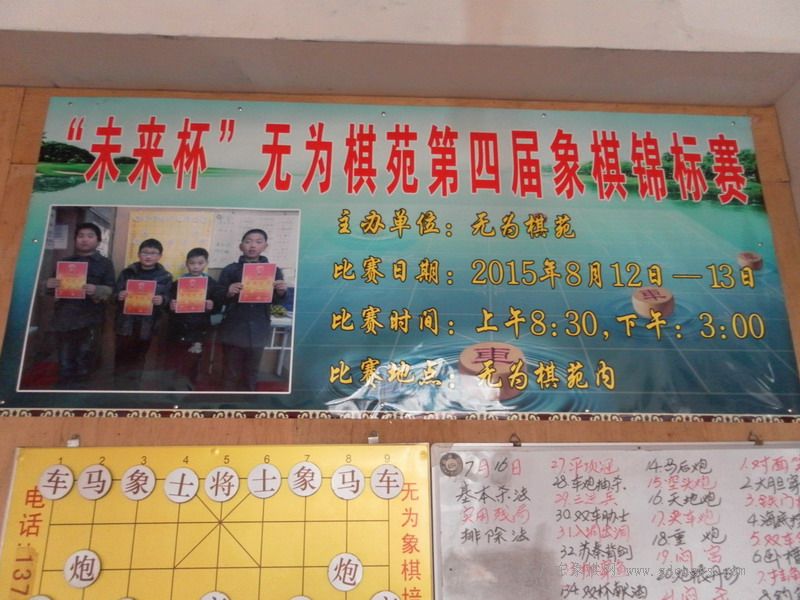 “未来杯”无为棋苑第四届象棋锦标赛
主办单位：无为棋苑
比赛日期：2015年8月12日—13日
比赛时间：上午8:30,下午：3:00
比赛地点：无为棋苑内
車
車
1 2 3 4 5 6 7 8 9
车 马 象 士 将 士 象 马 车
炮 炮
电话：137
无为象棋培
7月16日
基本杀法
实用残局
排除法
27.平顶冠
28.车炮抽杀
29.三进兵
30.双车助士
32.苏秦背剑
14.马后炮
15.空头炮
16.天地炮
17.夹车炮
18.重炮
19.闷宫
1.对面
2.大胆穿
3.铁门
4.海底
5.双车
6.卧槽